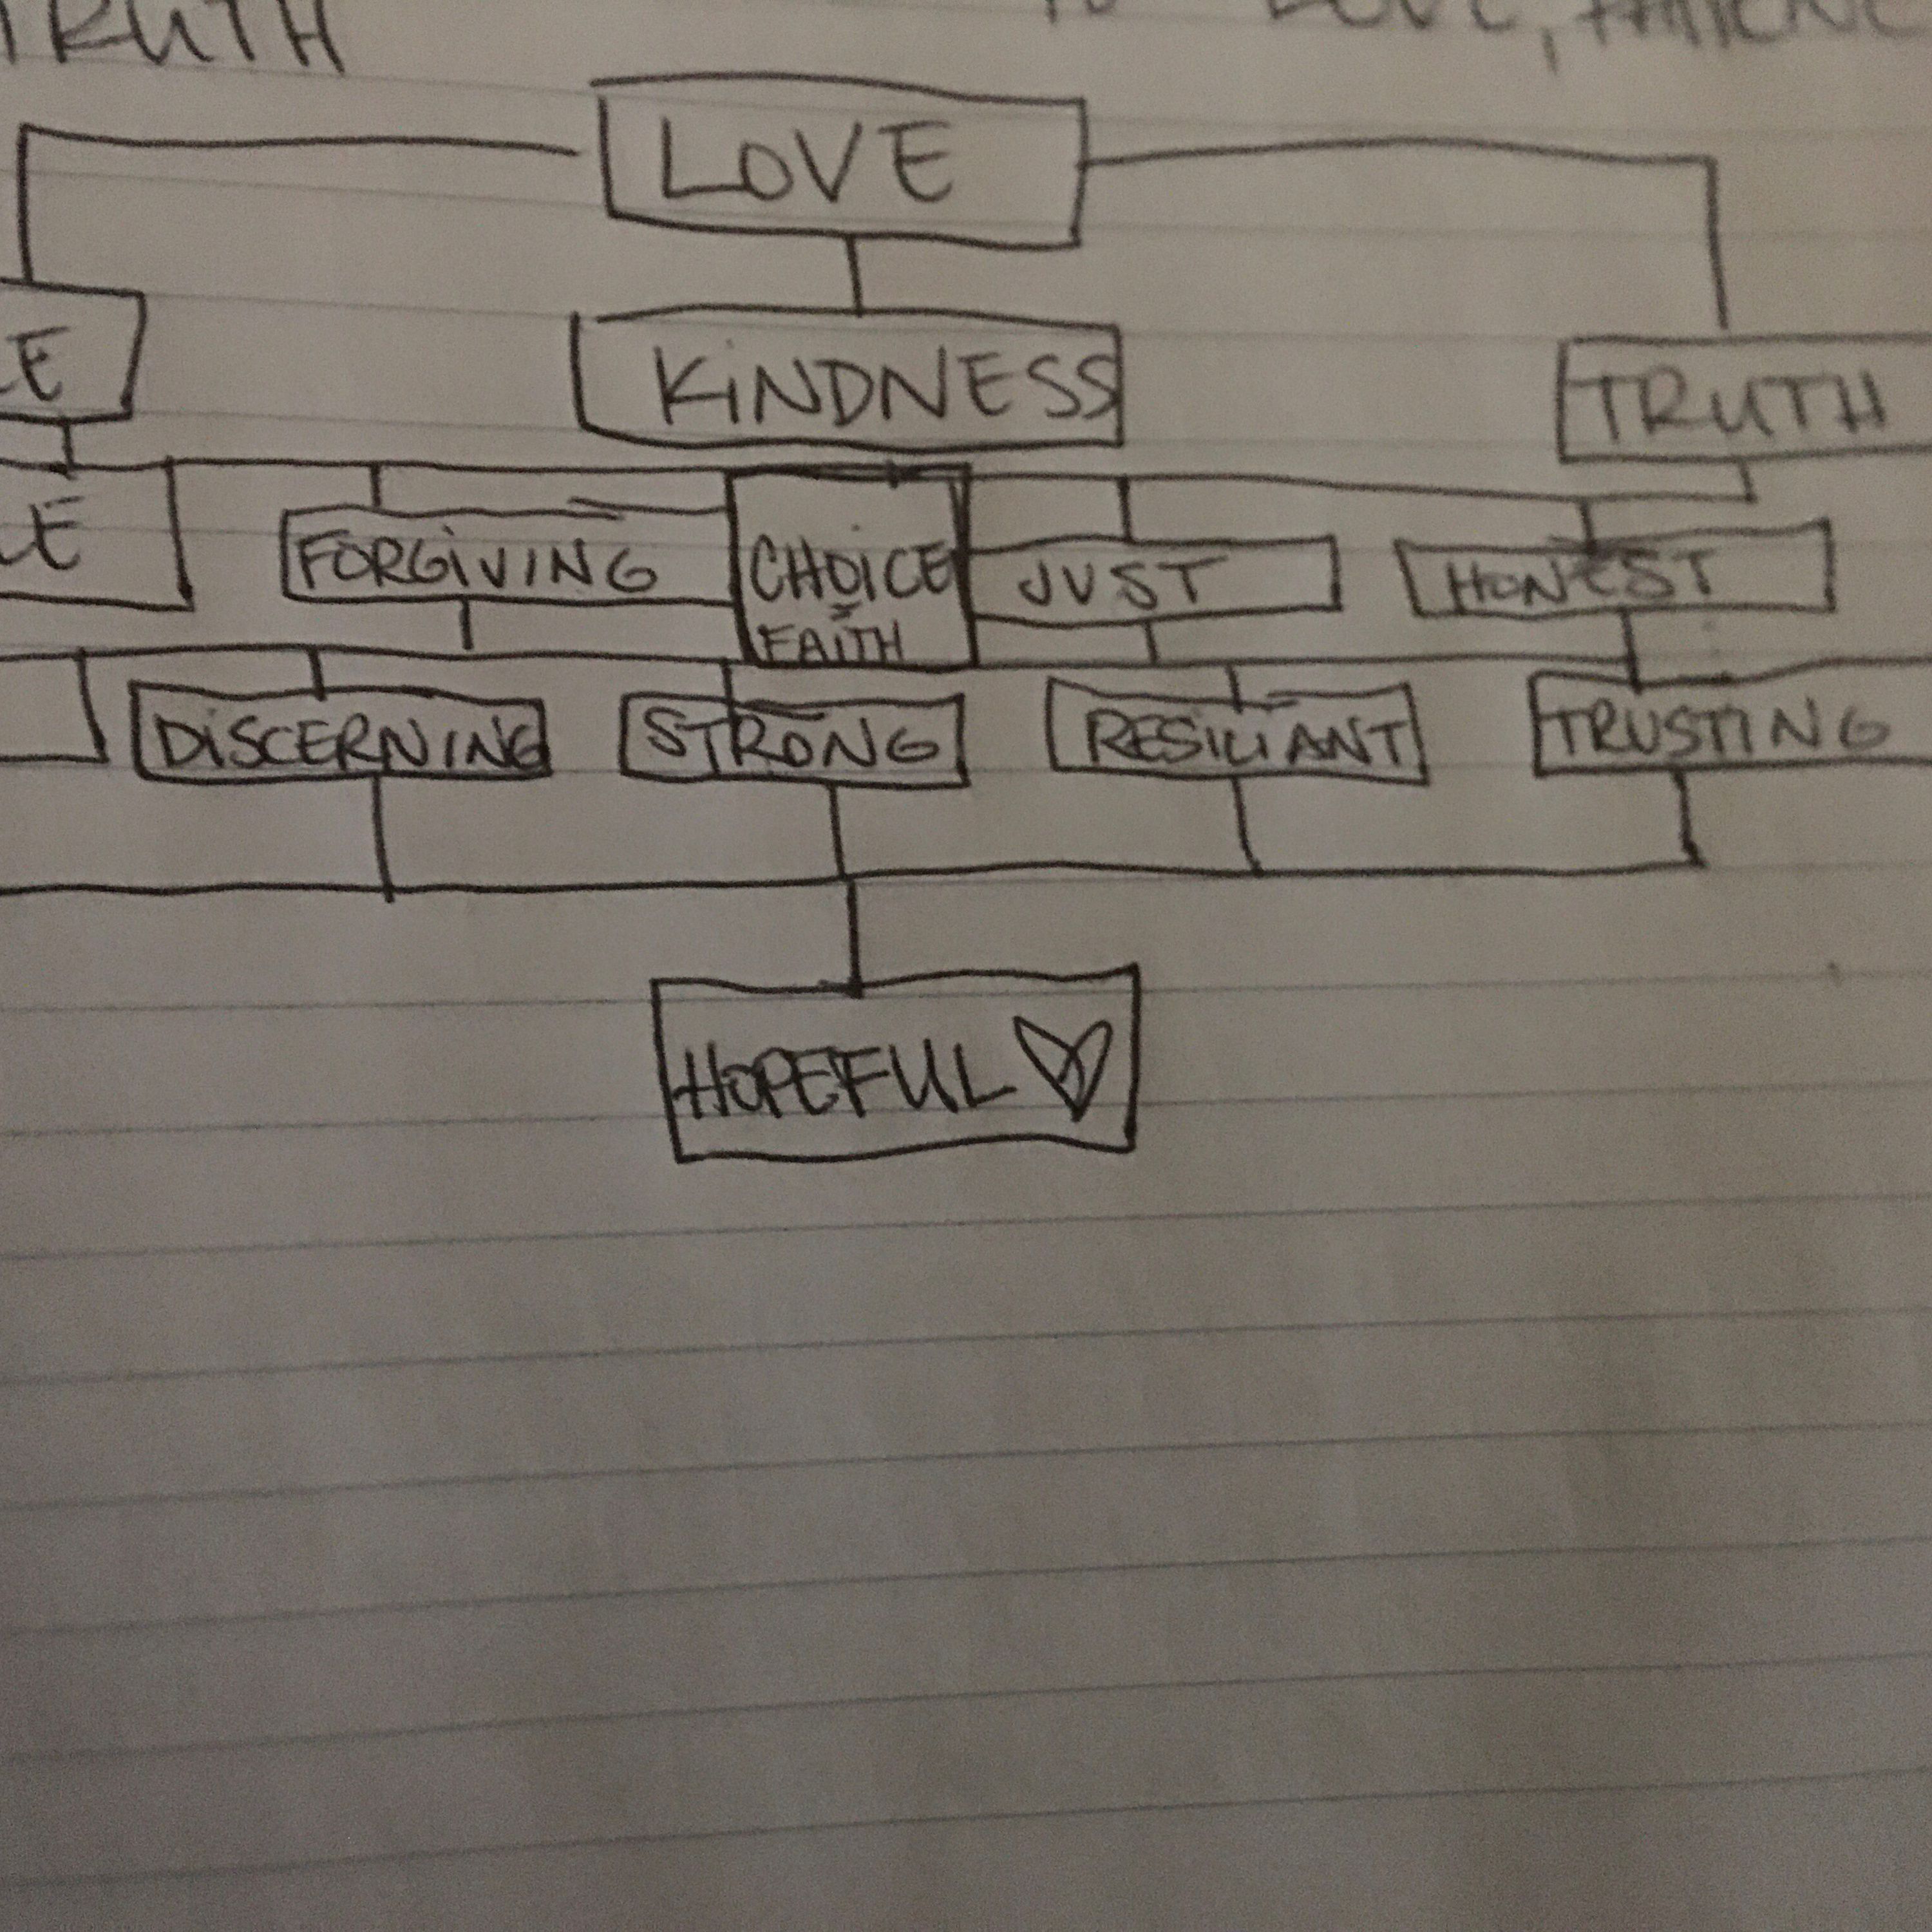 TRUTH
LOVE,
LOVE
KiNDNESS
TRUTH
FORGiViNG
CHOiCE
FAiTH
JUST
HONEST
DiSCERNING
STRONG
RESILIANT
TRUSTING
HOPEFUL